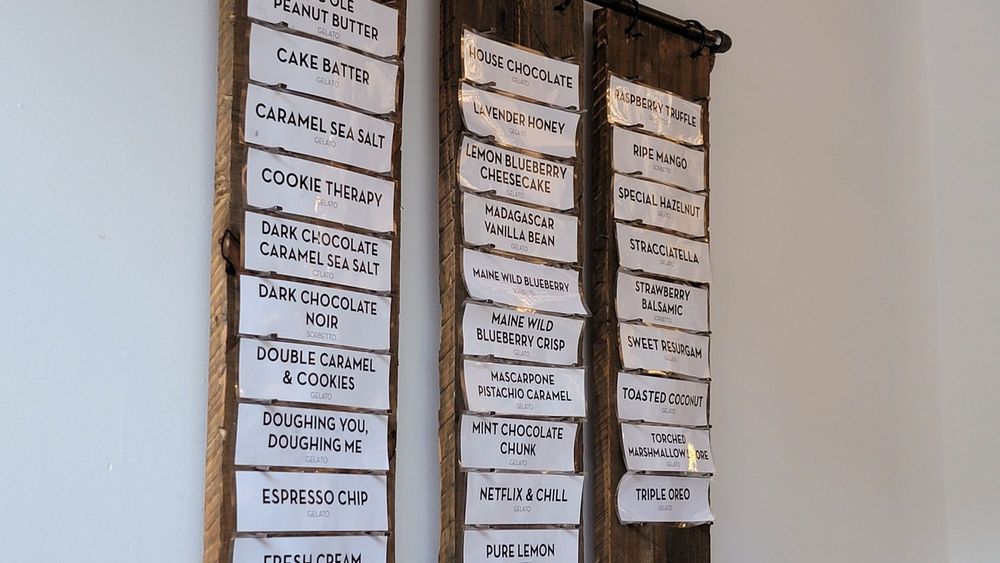 OLE
PEANUT BUTTER
GELATO
CAKE BATTER
GELATO
CARAMEL SEA SALT
GELATO
COOKIE THERAPY
GELATO
DARK CHOCOLATE
CARAMEL SEA SALT
GELATO
DARK CHOCOLATE
NOIR
SORBETTO
DOUBLE CARAMEL
& COOKIES
GELATO
DOUGHING YOU,
DOUGHING ME
GELATO
ESPRESSO CHIP
GELATO
FRESH CREAM
HOUSE CHOCOLATE
GELATO
LAVENDER HONEY
GELATO
LEMON BLUEBERRY
CHEESECAKE
GELATO
MADAGASCAR
VANILLA BEAN
GELATO
MAINE WILD BLUEBERRY
SORBETTO
MAINE WILD
BLUEBERRY CRISP
GELATO
MASCARPONE
PISTACHIO CARAMEL
GELATO
MINT CHOCOLATE
CHUNK
GELATO
NETFLIX & CHILL
GELATO
PURE LEMON
RASPBERRY TRUFFLE
GELATO
RIPE MANGO
SORBETTO
SPECIAL HAZELNUT
GELATO
STRACCIATELLA
GELATO
STRAWBERRY
BALSAMIC
SORBETTO
SWEET RESURGAM
GELATO
TOASTED COCONUT
GELATO
TORCHED
MARSHMALLOW
GELATO
TRIPLE OREO
GELATO